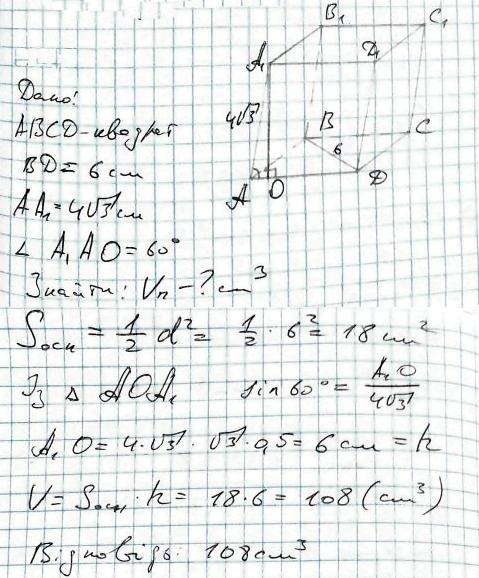 B₁ C₁
A₁ D₁
4√3
B C
6
A O D
Дано:
ABCD - квадрат
BD = 6 см
AA₁ = 4√3 см
∠ A₁AO = 60°
Знайти: Vп - ? см³
Sосн = 1/2 d² = 1/2 · 6² = 18 см²
Із △ AOA₁ sin 60° = A₁O/4√3
A₁O = 4·√3 · √3 · 0,5 = 6 см = h
V = Sосн · h = 18 · 6 = 108 (см³)
Відповідь: 108 см³